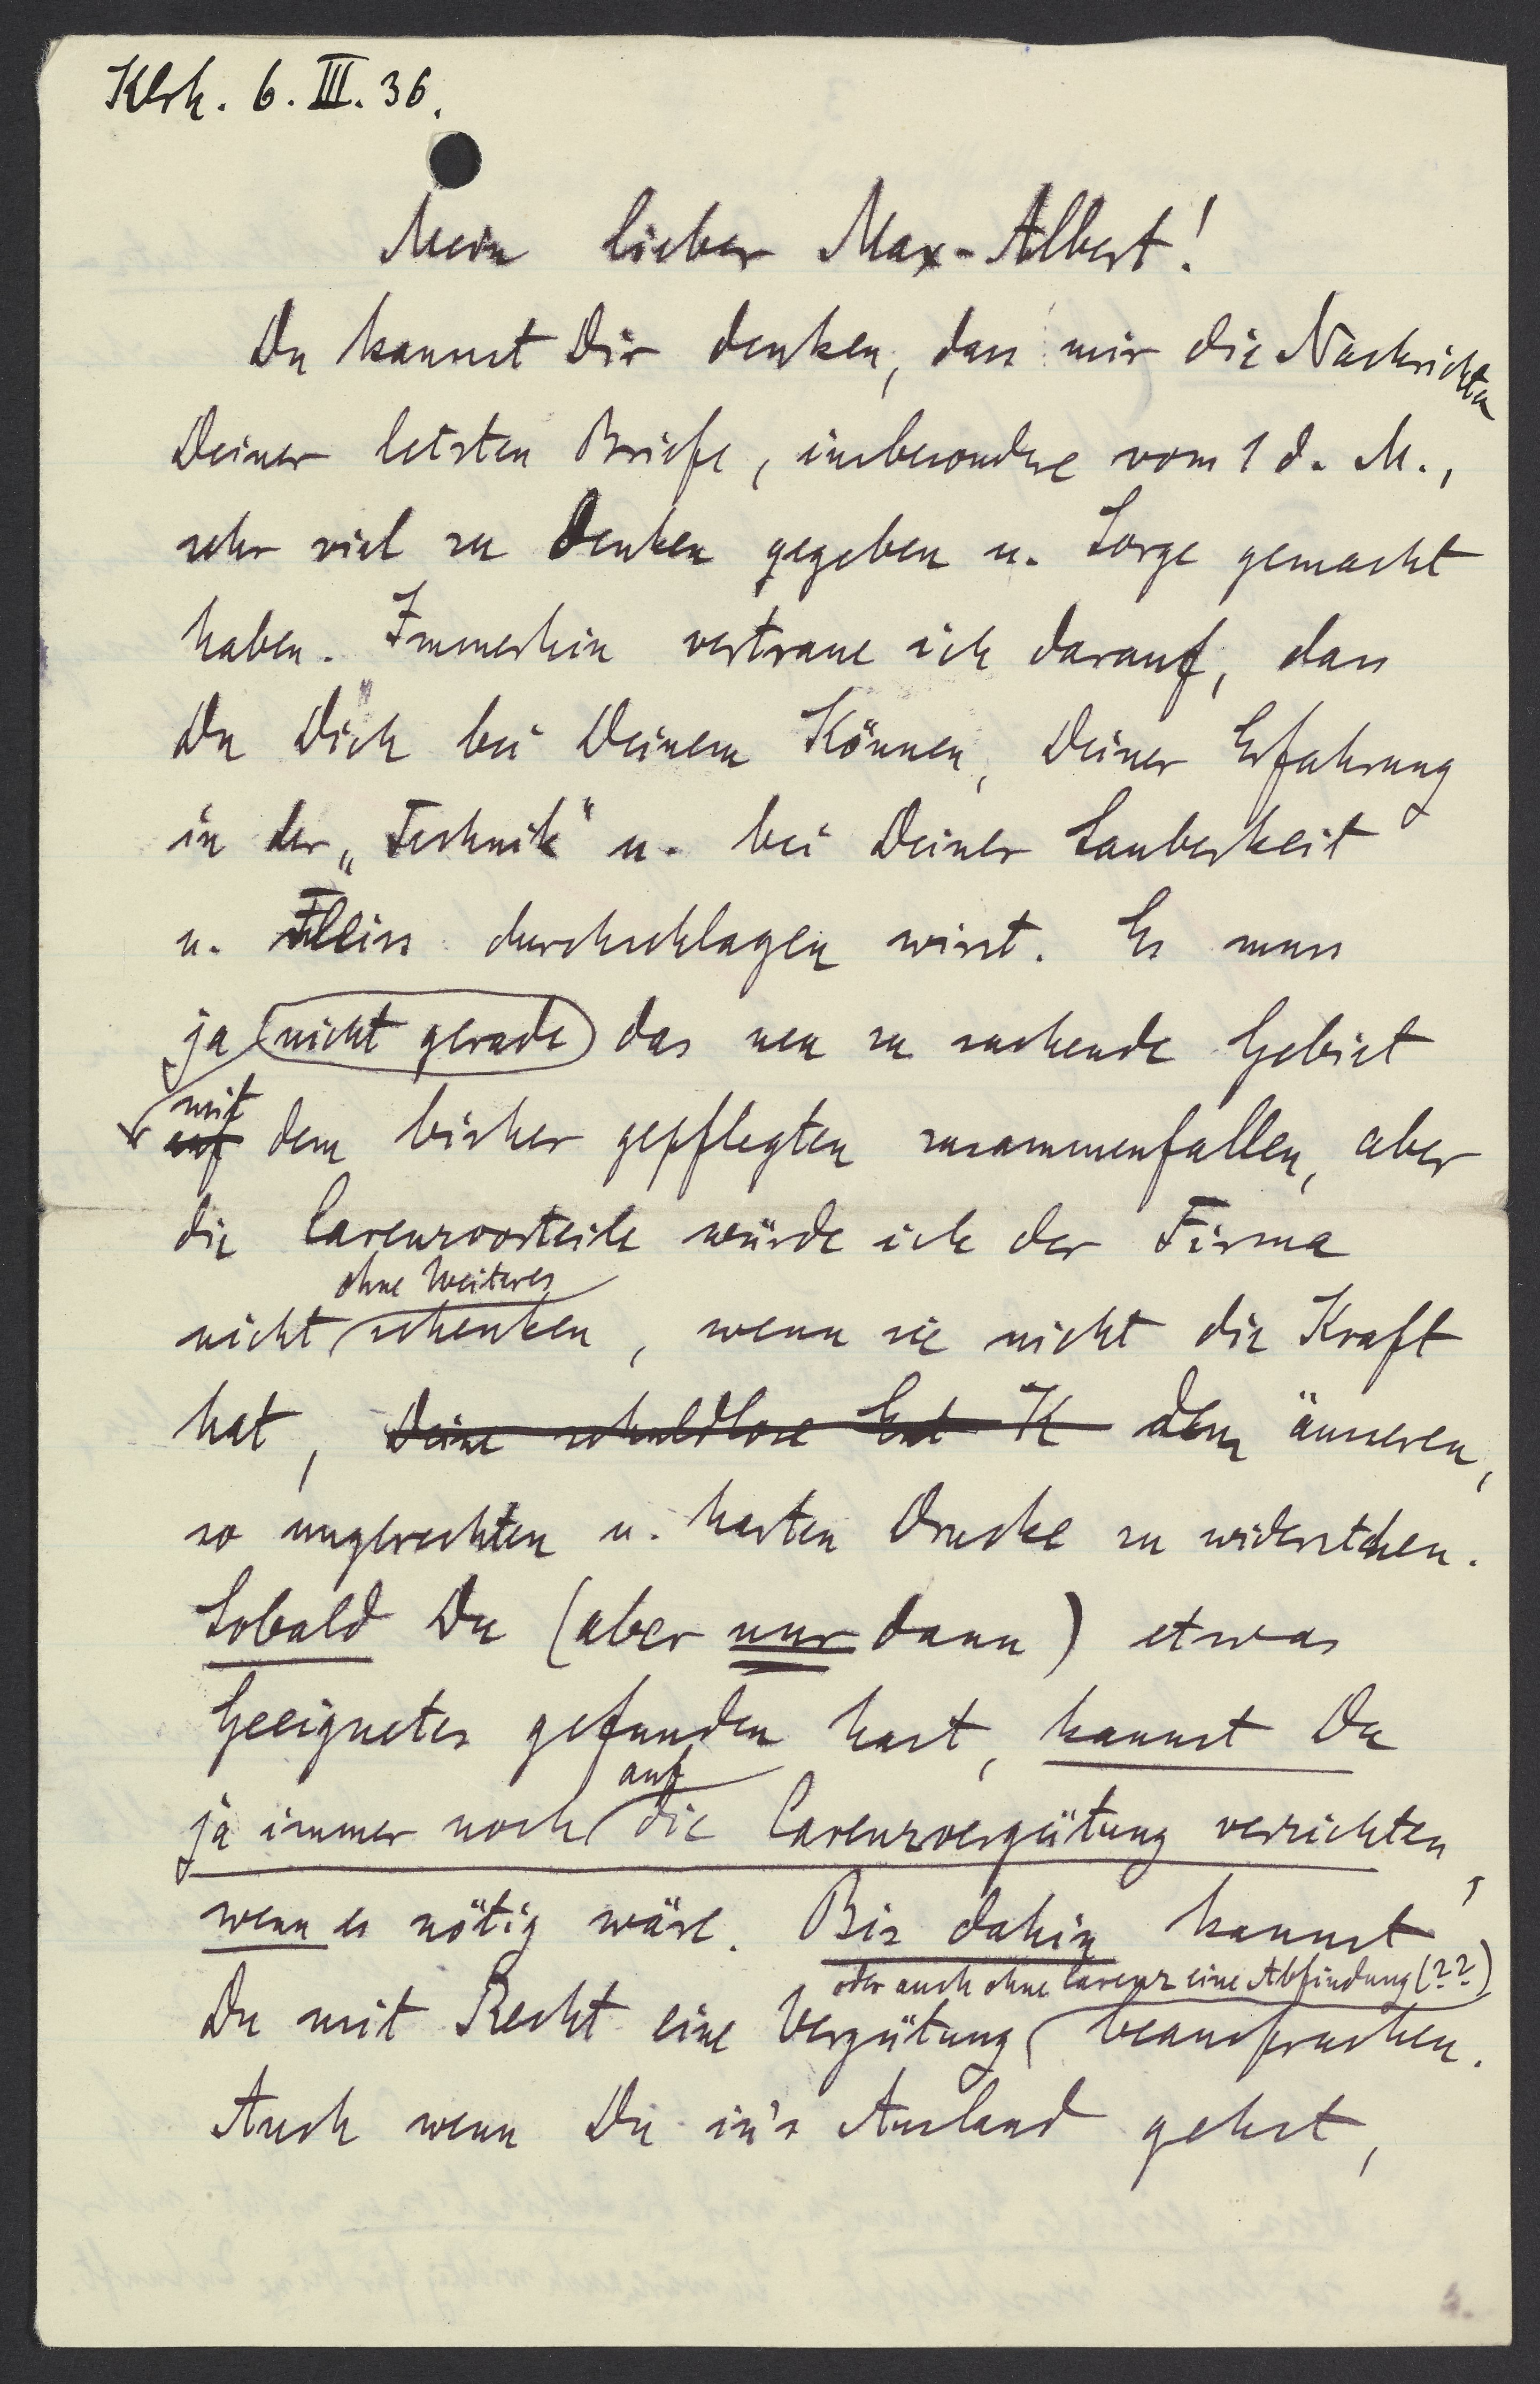 Klrh. 6. III. 36.
Mein lieber Max-Albert!
Du kannst Dir denken, dass mir die Nachrichten
Deiner letzten Briefe, insbesondere vom 1 d. M.,
sehr viel zu denken gegeben u. Sorge gemacht
haben. Immerhin vertraue ich darauf, dass
Du Dich bei Deinem Können, Deiner Erfahrung
in der „Technik" u. bei Deiner Sauberkeit
u. Fleiss durchschlagen wirst. Es muss
ja nicht gerade das neu zu suchende Gebiet
mit
auf dem bisher gepflegten zusammenfallen, aber
die Carenzvorteile würde ich der Firma
ohne Weiteres
nicht schenken, wenn sie nicht die Kraft
hat, Deine schuldlose Ent K dem äusseren,
so ungerechten u. harten Drucke zu widerstehen.
Sobald Du (aber nur dann) etwas
Geeignetes gefunden hast, kannst Du
auf
ja immer noch die Carenzvergütung verzichten,
wenn es nötig wäre. Bis dahin kannst
oder auch ohne Carenz eine Abfindung (??)
Du mit Recht eine Vergütung beanspruchen.
Auch wenn Du in's Ausland gehst,